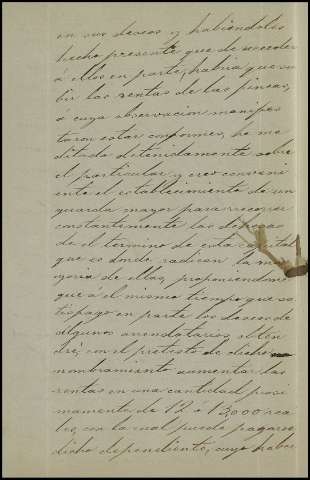 en sus deseos y habiendoles
hecho presente que de acceder
á ellos en parte, habria que su
bir las rentas de las fincas,
á cuya observacion manifes
taron estar conformes, he me
ditado detenidamente sobre
el particular y creo conveni
ente el establecimiento de un
guarda mayor para recorrer
constantemente las dehesas
de el termino de esta capital
que es donde radican la ma
yoria de ellas, proponiendome
que á el mismo tiempo que sa
tisfago en parte los deseos de
algunos arrendatarios, obten
dré, con el pretesto de dicho
nombramiento aumentar las
rentas en una cantidad procsi
mamente de 12 á 13,000 rea
les, con la cual puede pagarse
dicho dependiente, cuyo haber